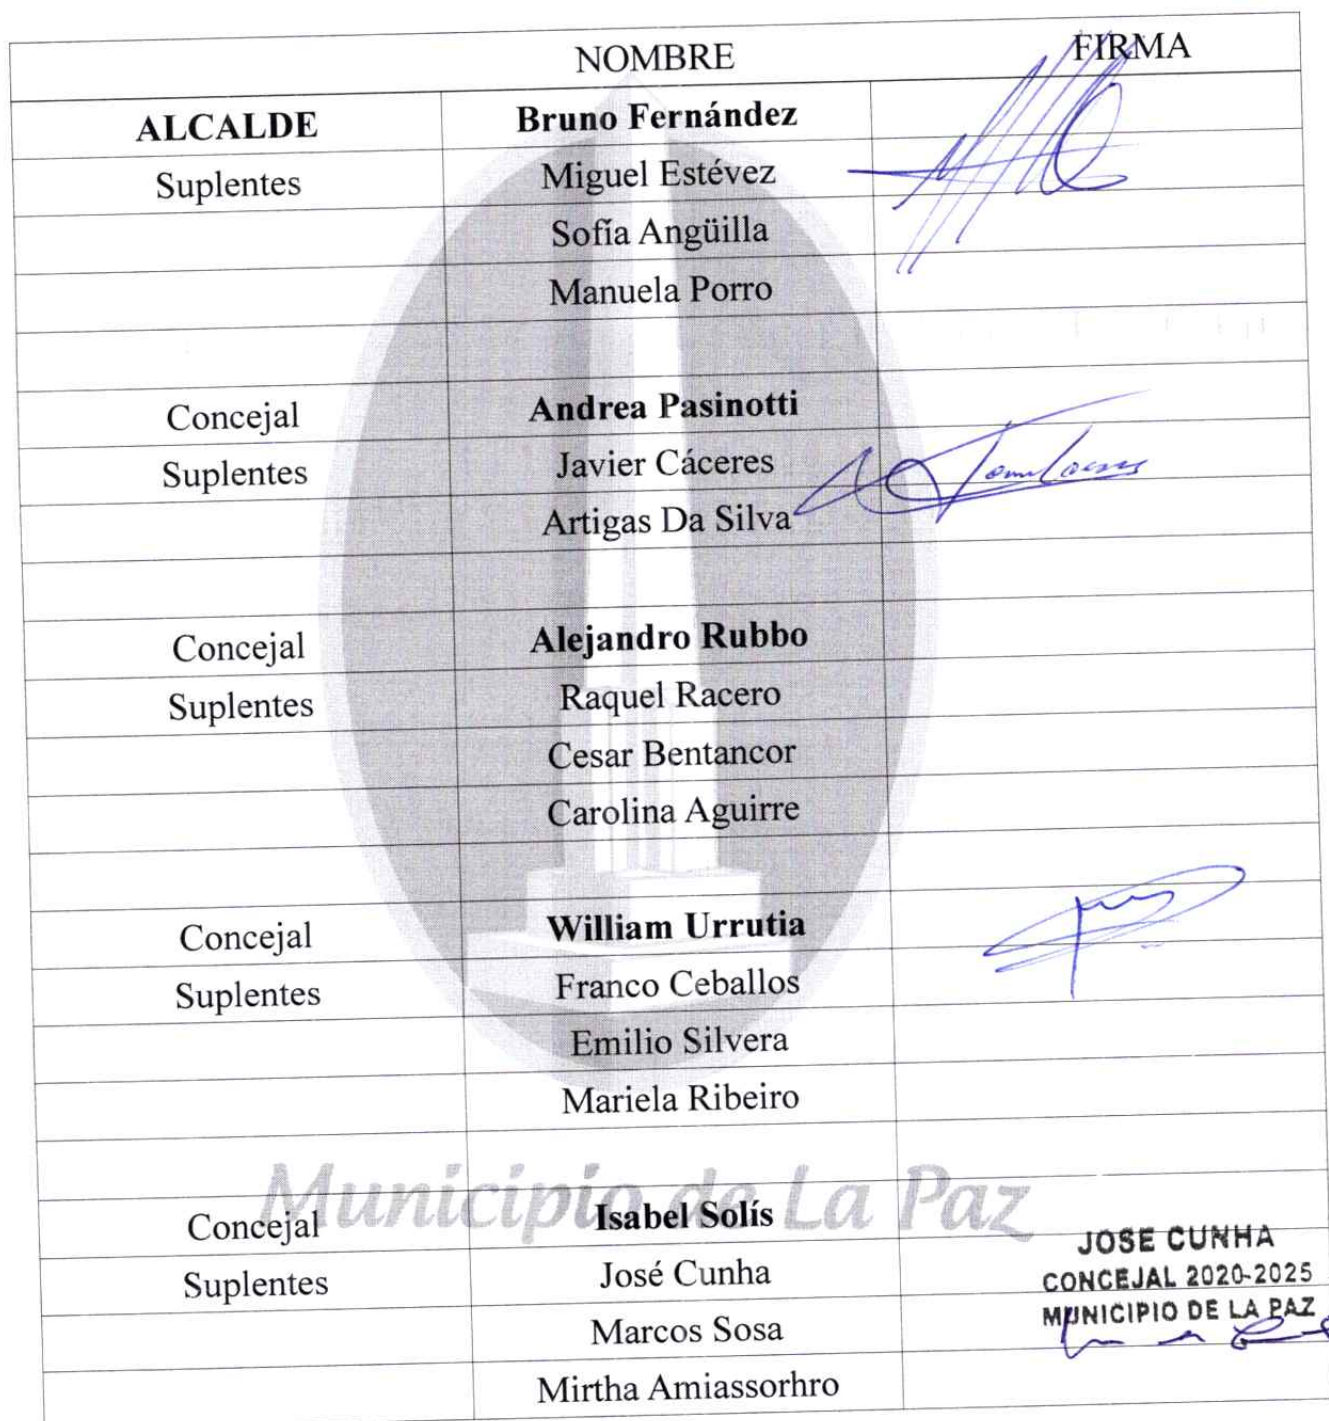 NOMBRE FIRMA
ALCALDE Bruno Fernández
Suplentes Miguel Estévez
Sofía Angüilla
Manuela Porro
Concejal Andrea Pasinotti
Suplentes Javier Cáceres
Artigas Da Silva
Concejal Alejandro Rubbo
Suplentes Raquel Racero
Cesar Bentancor
Carolina Aguirre
Concejal William Urrutia
Suplentes Franco Ceballos
Emilio Silvera
Mariela Ribeiro
Municipio de La Paz
Concejal Isabel Solís
Suplentes José Cunha
Marcos Sosa
Mirtha Amiassorhro
JOSE CUNHA
CONCEJAL 2020-2025
MUNICIPIO DE LA PAZ